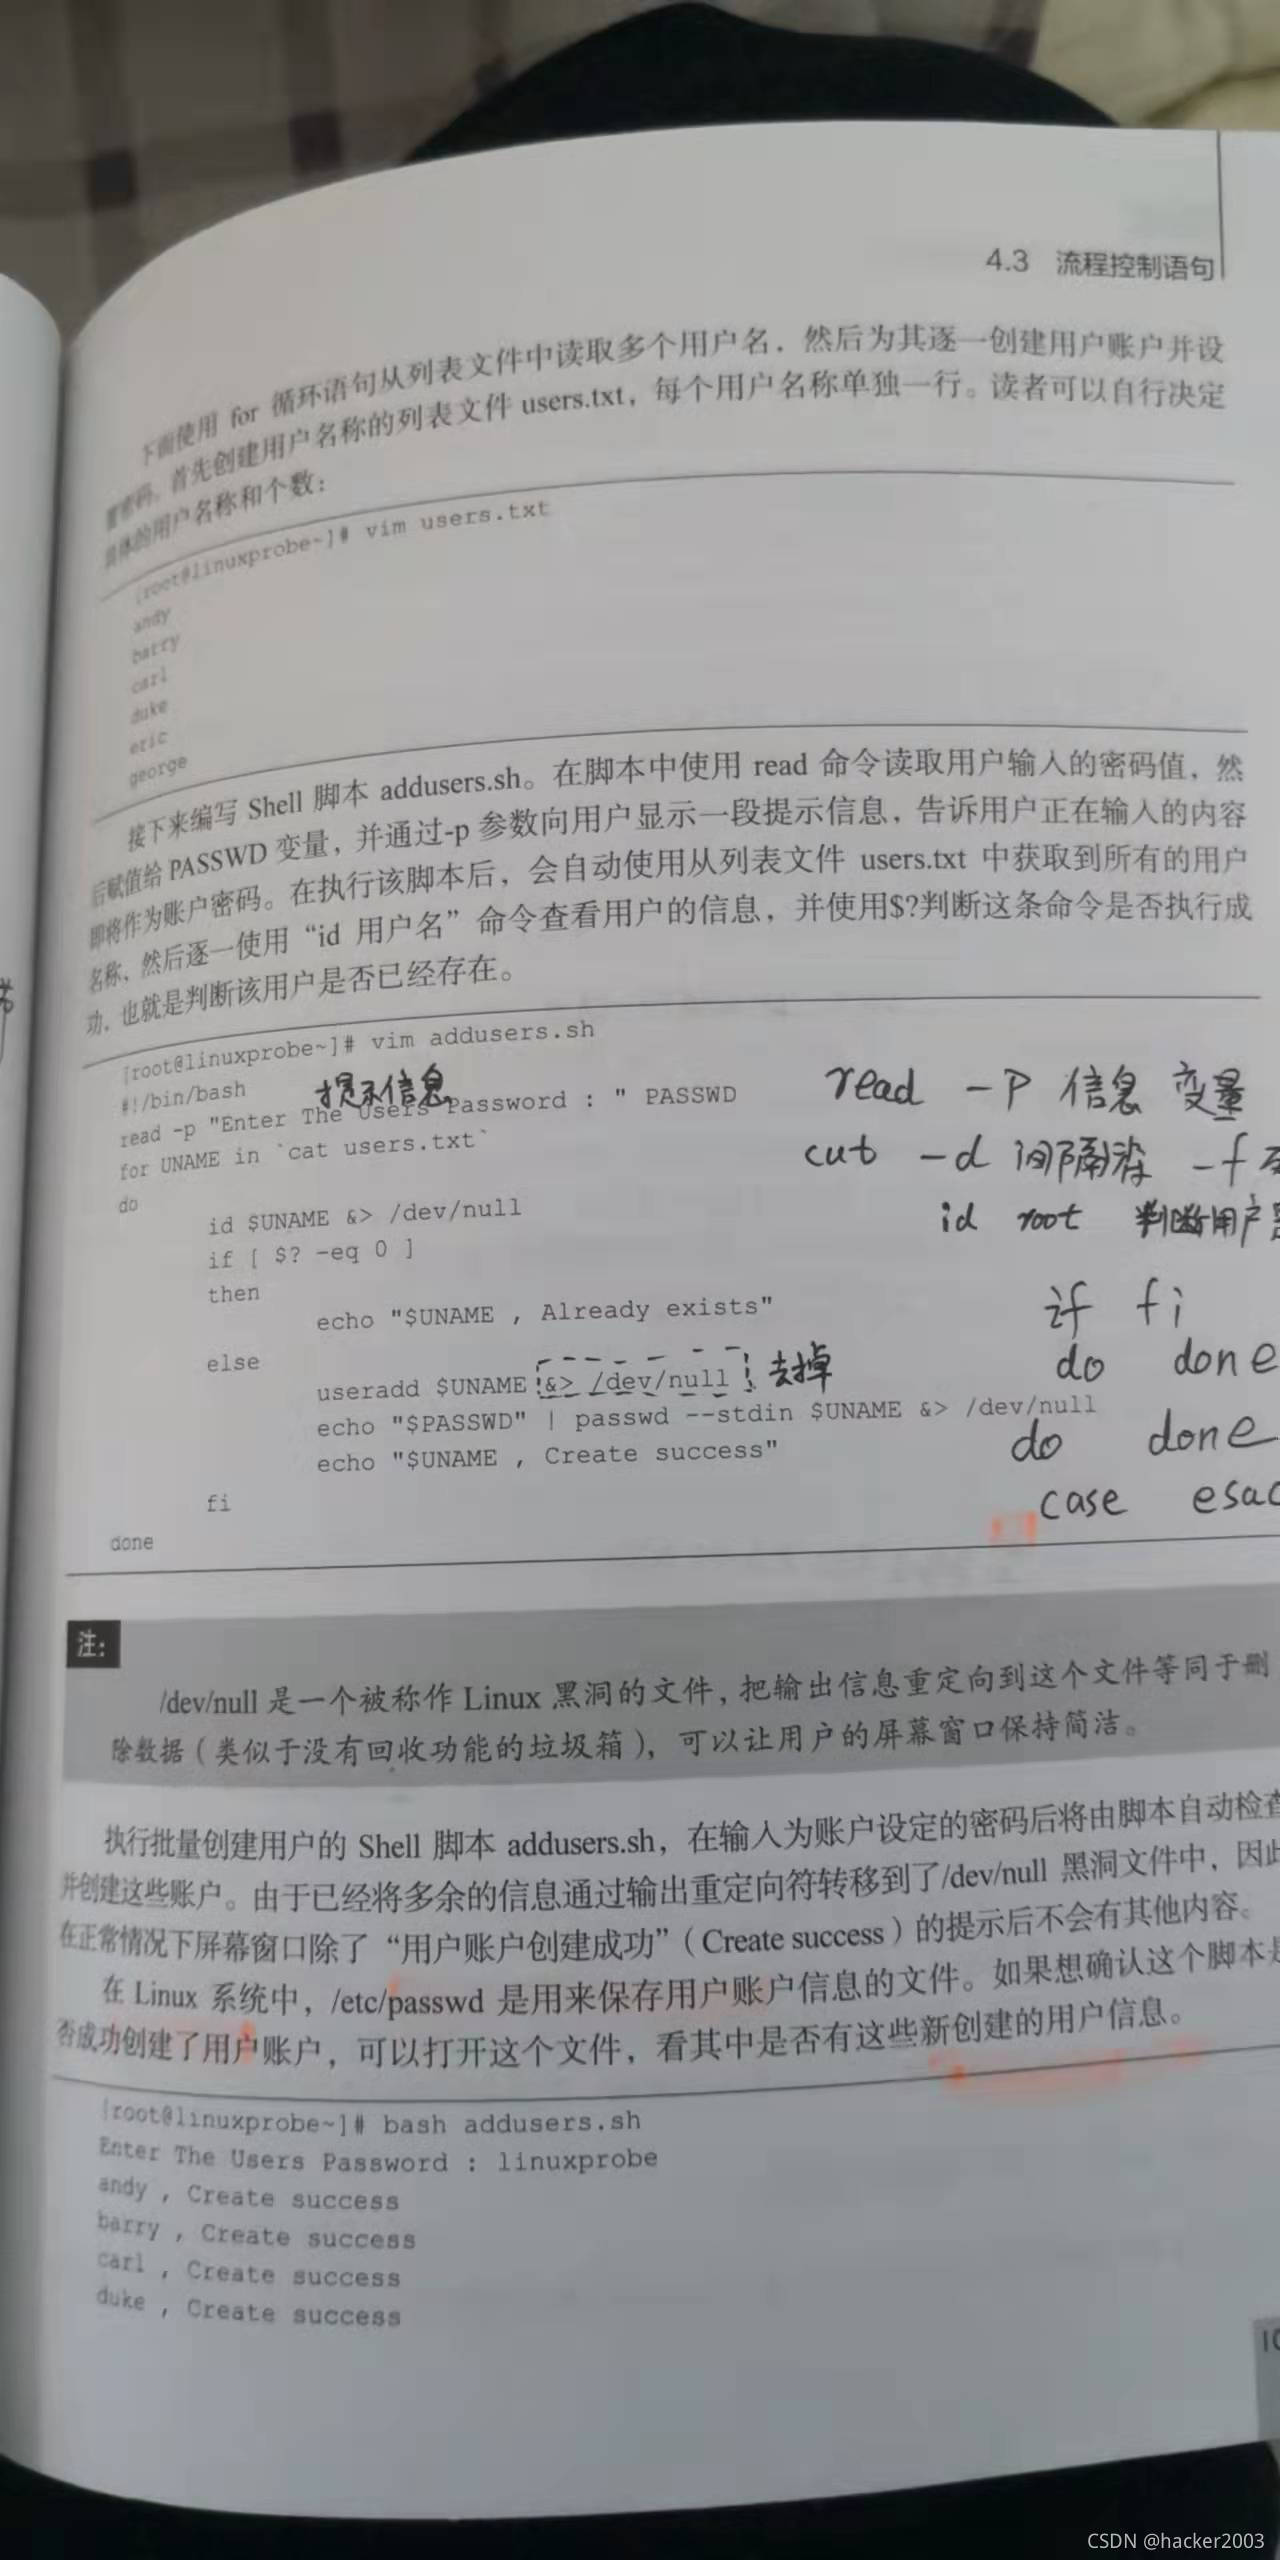 4.3 流程控制语句
下面使用 for 循环语句从列表文件中读取多个用户名，然后为其逐一创建用户账户并设
置密码。首先创建用户名称的列表文件 users.txt，每个用户名称单独一行。读者可以自行决定
具体的用户名称和个数：
[root@linuxprobe~]# vim users.txt
andy
barry
carl
duke
eric
george
接下来编写 Shell 脚本 addusers.sh。在脚本中使用 read 命令读取用户输入的密码值，然
后赋值给 PASSWD 变量，并通过-p 参数向用户显示一段提示信息，告诉用户正在输入的内容
即将作为账户密码。在执行该脚本后，会自动使用从列表文件 users.txt 中获取到所有的用户
名称，然后逐一使用“id 用户名”命令查看用户的信息，并使用$?判断这条命令是否执行成
功，也就是判断该用户是否已经存在。
[root@linuxprobe~]# vim addusers.sh
#!/bin/bash
提示信息
read -p "Enter The Users Password : " PASSWD
read -P 信息 变量
for UNAME in `cat users.txt`
cut -d 间隔 -f
do
id $UNAME &> /dev/null
id root 判断用户
if [ $? -eq 0 ]
then
echo "$UNAME , Already exists"
if fi
else
do done
useradd $UNAME &> /dev/null 去掉
echo "$PASSWD" | passwd --stdin $UNAME &> /dev/null
do done
echo "$UNAME , Create success"
case esac
fi
done
注：
/dev/null 是一个被称作 Linux 黑洞的文件，把输出信息重定向到这个文件等同于删
除数据（类似于没有回收功能的垃圾箱），可以让用户的屏幕窗口保持简洁。
执行批量创建用户的 Shell 脚本 addusers.sh，在输入为账户设定的密码后将由脚本自动检查
并创建这些账户。由于已经将多余的信息通过输出重定向符转移到了/dev/null 黑洞文件中，因此
在正常情况下屏幕窗口除了“用户账户创建成功”（Create success）的提示后不会有其他内容。
在 Linux 系统中，/etc/passwd 是用来保存用户账户信息的文件。如果想确认这个脚本是
否成功创建了用户账户，可以打开这个文件，看其中是否有这些新创建的用户信息。
[root@linuxprobe~]# bash addusers.sh
Enter The Users Password : linuxprobe
andy , Create success
barry , Create success
carl , Create success
duke , Create success
CSDN @hacker2003